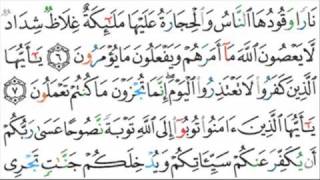 نَارًا وَقُودُهَا ٱلنَّاسُ وَٱلْحِجَارَةُ عَلَيْهَا مَلَٰٓئِكَةٌ غِلَاظٌ شِدَادٌ
لَّا يَعْصُونَ ٱللَّهَ مَآ أَمَرَهُمْ وَيَفْعَلُونَ مَا يُؤْمَرُونَ ٦ يَٰٓأَيُّهَا
ٱلَّذِينَ كَفَرُوا۟ لَا تَعْتَذِرُوا۟ ٱلْيَوْمَ إِنَّمَا تُجْزَوْنَ مَا كُنتُمْ تَعْمَلُونَ ٧
يَٰٓأَيُّهَا ٱلَّذِينَ ءَامَنُوا۟ تُوبُوٓا۟ إِلَى ٱللَّهِ تَوْبَةً نَّصُوحًا عَسَىٰ رَبُّكُمْ
أَن يُكَفِّرَ عَنكُمْ سَيِّـَٔاتِكُمْ وَيُدْخِلَكُمْ جَنَّٰتٍ تَجْرِى